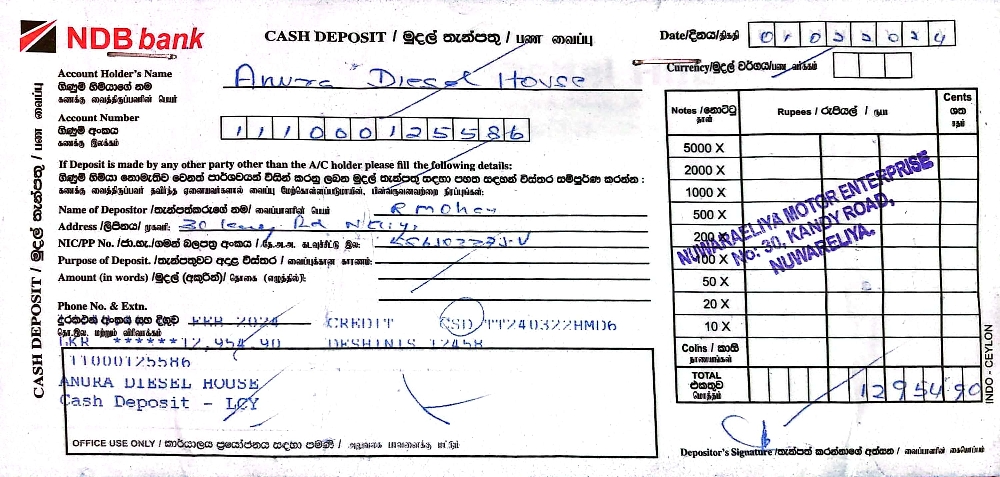 NDB bank
CASH DEPOSIT / මුදල් තැන්පතු / பண வைப்பு
Date/දිනය/திகதி 01022024
Currency/මුදල් වර්ගය/பண வர்க்கம்
Account Holder's Name
ගිණුම් හිමියාගේ නම
கணக்கு வைத்திருப்பவரின் பெயர்
Anura Diesel House
Account Number
ගිණුම් අංකය
கணக்கு இலக்கம்
111000125586
If Deposit is made by any other party other than the A/C holder please fill the following details:
ගිණුම් හිමියා නොමැතිව වෙනත් පාර්ශවයක් විසින් කරනු ලබන මුදල් තැන්පතු සඳහා පහත සඳහන් විස්තර සම්පූර්ණ කරන්න :
கணக்கு வைத்திருப்பவர் தவிர்ந்த ஏனையவர்களால் வைப்பு மேற்கொள்ளப்படுமாயின், பின்வருவனவற்றை நிரப்புங்கள்:
Name of Depositor /තැන්පත්කරුගේ නම/ வைப்பாளரின் பெயர் R Mohan
Address /ලිපිනය/ முகவரி: 30 Rd N'Eliya
NIC/PP No. /ජා.හැ./ගමන් බලපත්‍ර අංකය / தே.அ.அ. கடவுச்சீட்டு இல:
Purpose of Deposit. /තැන්පතුවට අදාළ විස්තර / வைப்புக்கான காரணம்:
Amount (in words) /මුදල් (අකුරින්) / தொகை (எழுத்தில்):
Phone No. & Extn.
දුරකථන අංකය සහ දිගුව
தொ.இல. மற்றும் விரிவாக்கம்
FEB 2024 CREDIT CSD TT240322HMD6
LKR ******12,954.90 DESHINIS 12458
11000125586
ANURA DIESEL HOUSE
Cash Deposit - LCY
OFFICE USE ONLY / කාර්යාලය ප්‍රයෝජනය සඳහා පමණි / அலுவலக பாவனைக்கு மட்டும்
CASH DEPOSIT / මුදල් තැන්පතු / பண வைப்பு
Notes /නොට්ටු
தாள்
Rupees / රුපියල් / ரூபா
Cents
ශත
சதம்
5000 X
2000 X
1000 X
500 X
200 X
100 X
50 X
20 X
10 X
Coins / කාසි
நாணயங்கள்
TOTAL
එකතුව
மொத்தம்
12954 90
NUWARAELIYA MOTOR ENTERPRISE
No: 30, KANDY ROAD,
NUWARELIYA.
Depositor's Signature /තැන්පත් කරන්නාගේ අත්සන / வைப்பாளரின் கையொப்பம்
INDO - CEYLON